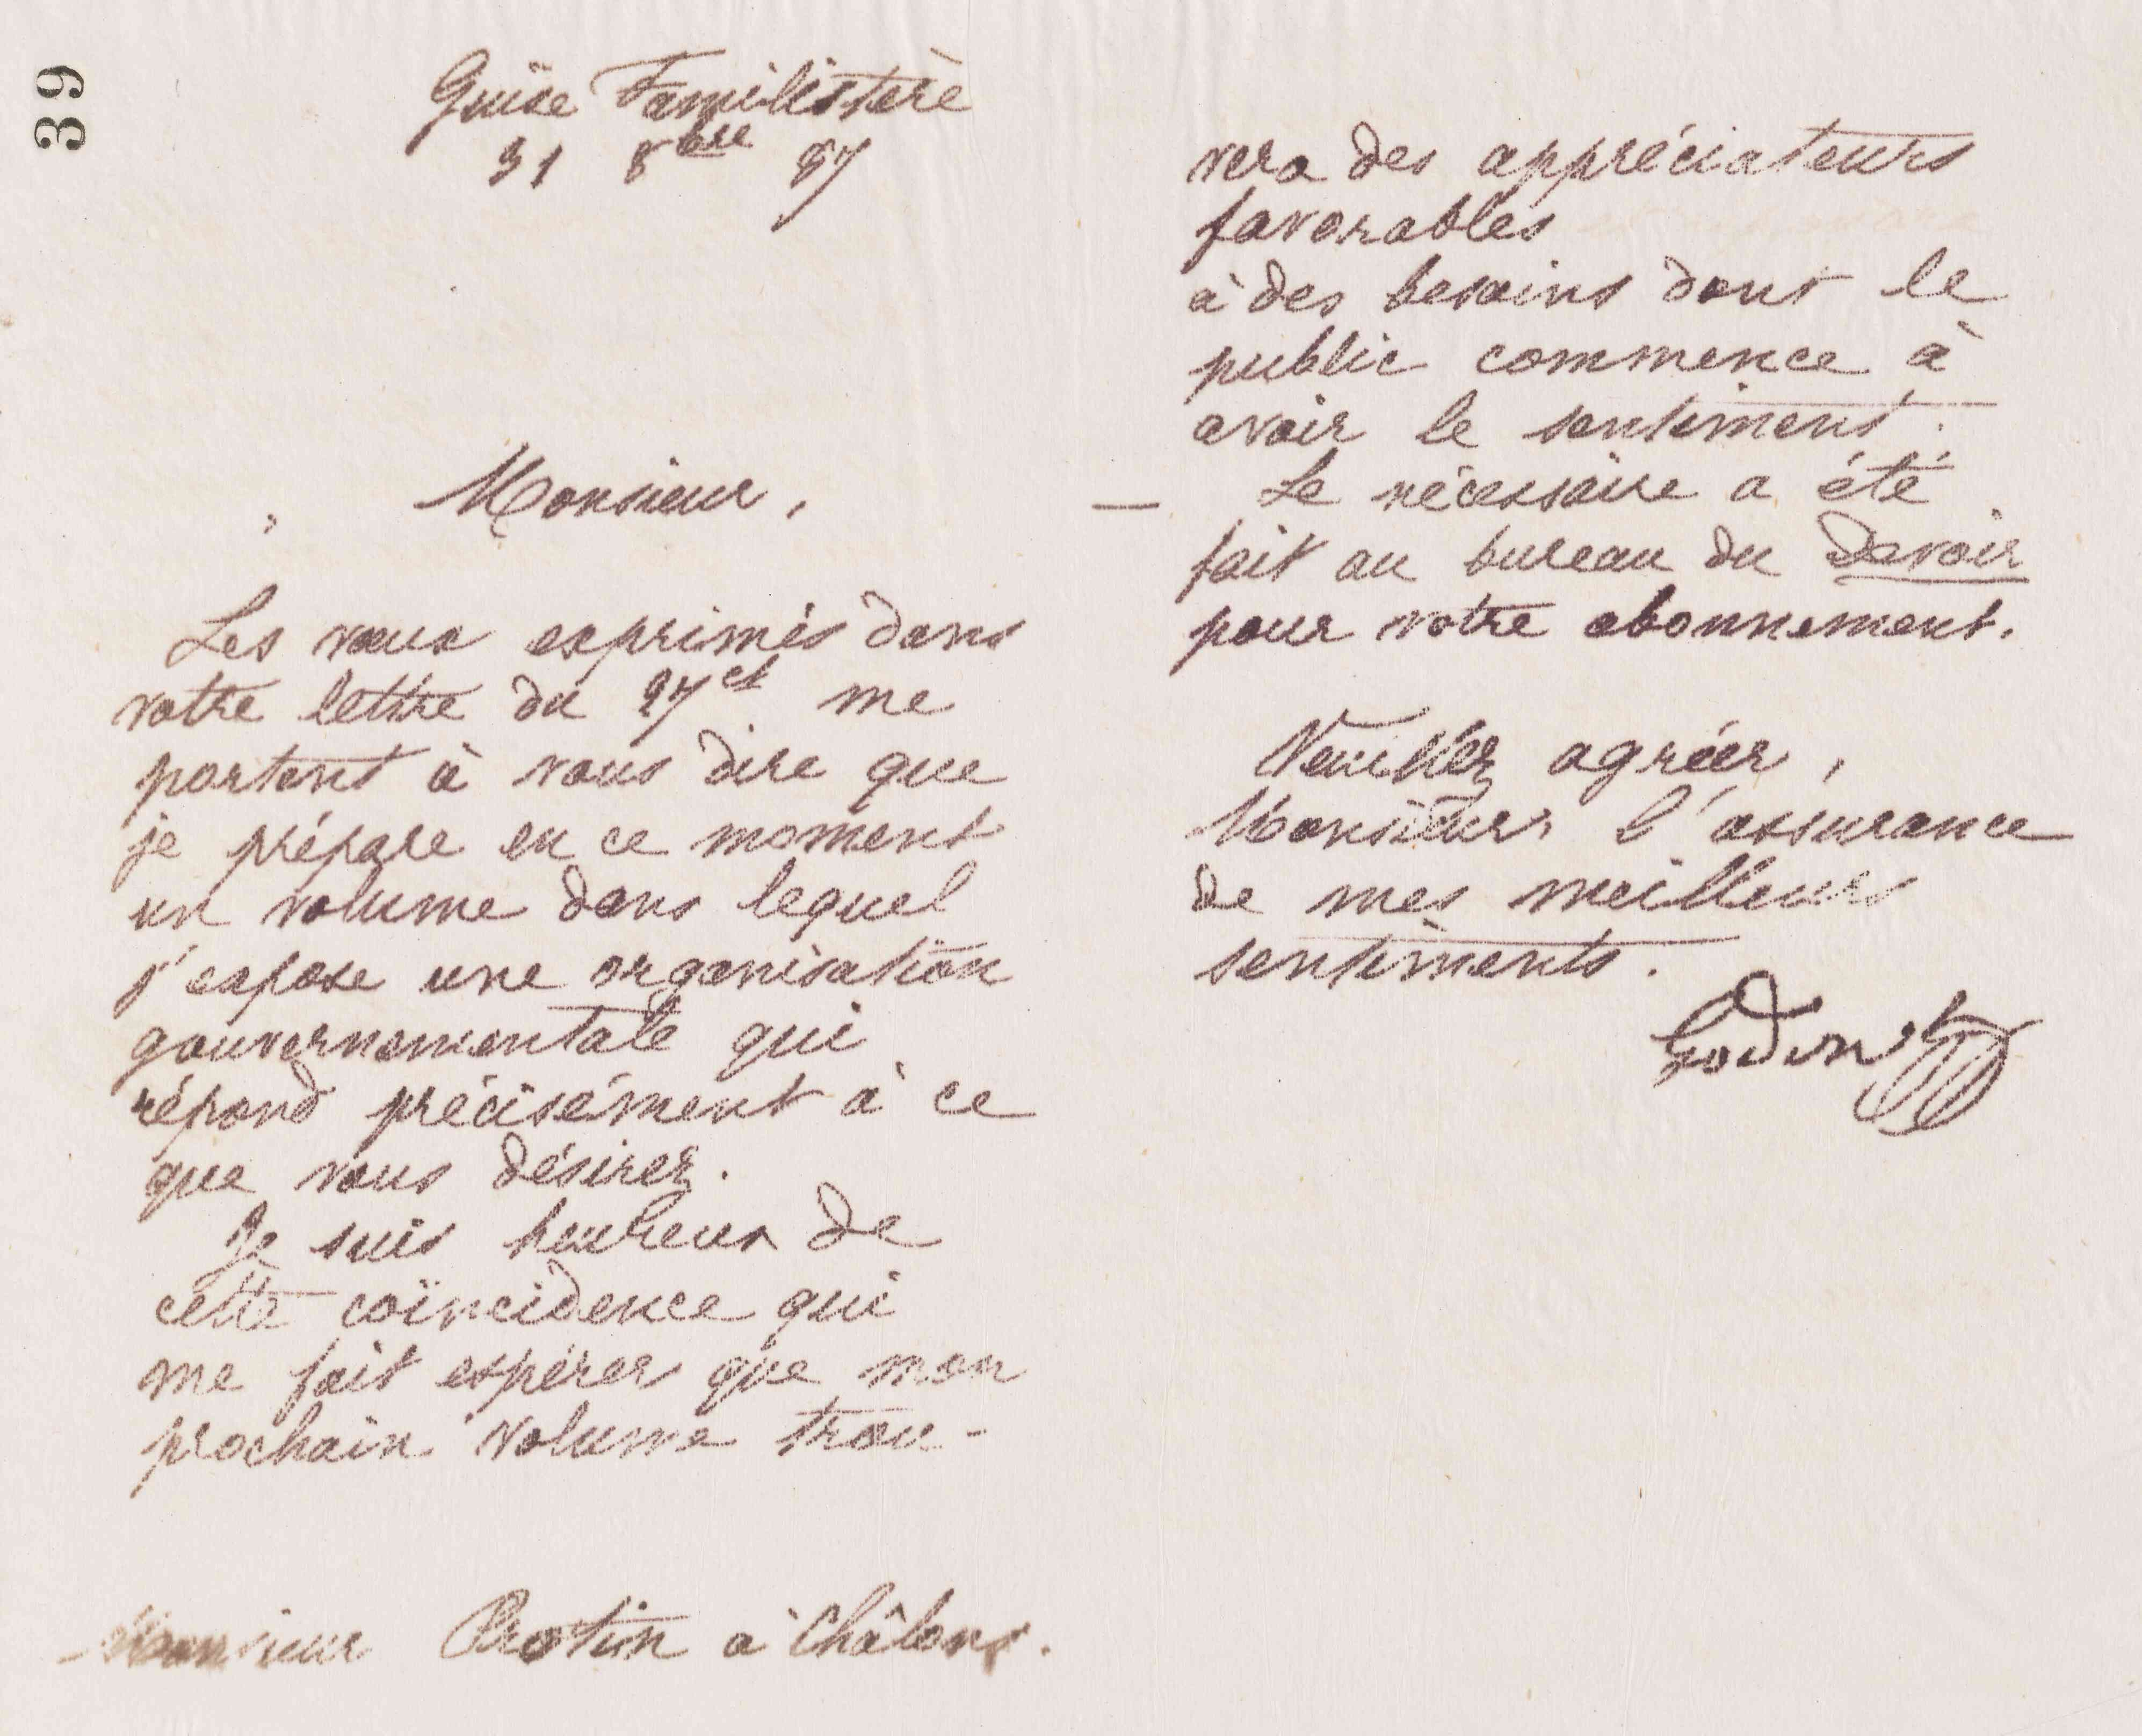 39
Guise Familistère
31 8bre 87
Monsieur,
Les vœux exprimés dans
votre lettre du 27 ct me
portent à vous dire que
je prépare en ce moment
un volume dans lequel
j'expose une organisation
gouvernementale qui
répond précisément à ce
que vous désirez.
Je suis heureux de
cette coïncidence qui
me fait espérer que mon
prochain volume trou-
Monsieur Protin à Châlons.
vera des appréciateurs
favorables
à des besoins dont le
public commence à
avoir le sentiment.
— Le nécessaire a été
fait au bureau du Devoir
pour votre abonnement.
Veuillez agréer,
Monsieur, l'assurance
de mes meilleurs
sentiments.
Godin